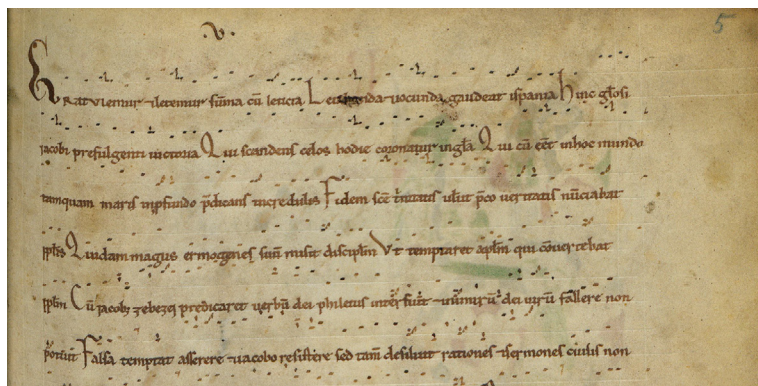 .v. 5
Gratulemur et letemur sūma cū leticia Letabunda iocunda gaudeat ispania hinc gl̄osi
iacobi prefulgenti victoria Qui scandens celos hodie coronatur in gl̄a Qui cū eēt in hoc mundo
tamquam maris inp̄fundo p̄dicans incredulis Fidem sc̄e t̄nitatis uelut p̄co veritatis nūciabat
pp̄lis Quidam magus ermogenes suū misit disciplm̄ Vt temptaret ap̄lm̄ qui cōuertebat
pp̄lm̄ Cū iacobꝰ zebezei predicaret uerbū dei philetus interfuit dei uirū fallere non
potuit Falsa temptat asserere et iacobo resistere sed tam̄ desiluit rationes et sermones ciuilis non